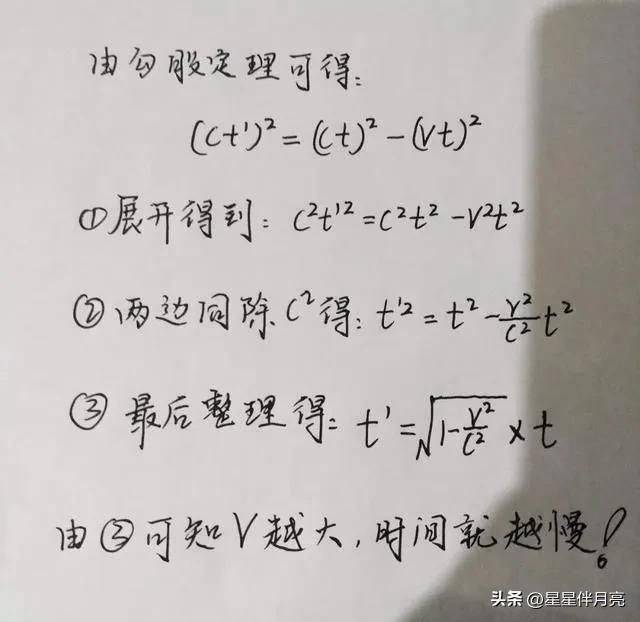 由勾股定理可得:
(Ct')² = (Ct)² - (Vt)²
①展开得到: C²t'² = C²t² - V²t²
②两边同除C²得: t'² = t² - V²/C² t²
③最后整理得: t' = √(1 - V²/C²) × t
由③可知V越大,时间就越慢!
头条 @星星伴月亮